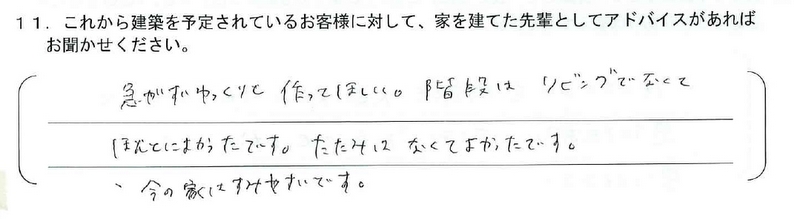 11. これから建築を予定されているお客様に対して、家を建てた先輩としてアドバイスがあれば
お聞かせください。
急がずゆっくりと作ってほしい。階段はリビングでなくて
ほんとによかったです。たたみはなくてよかったです。
、今の家はすみやすいです。